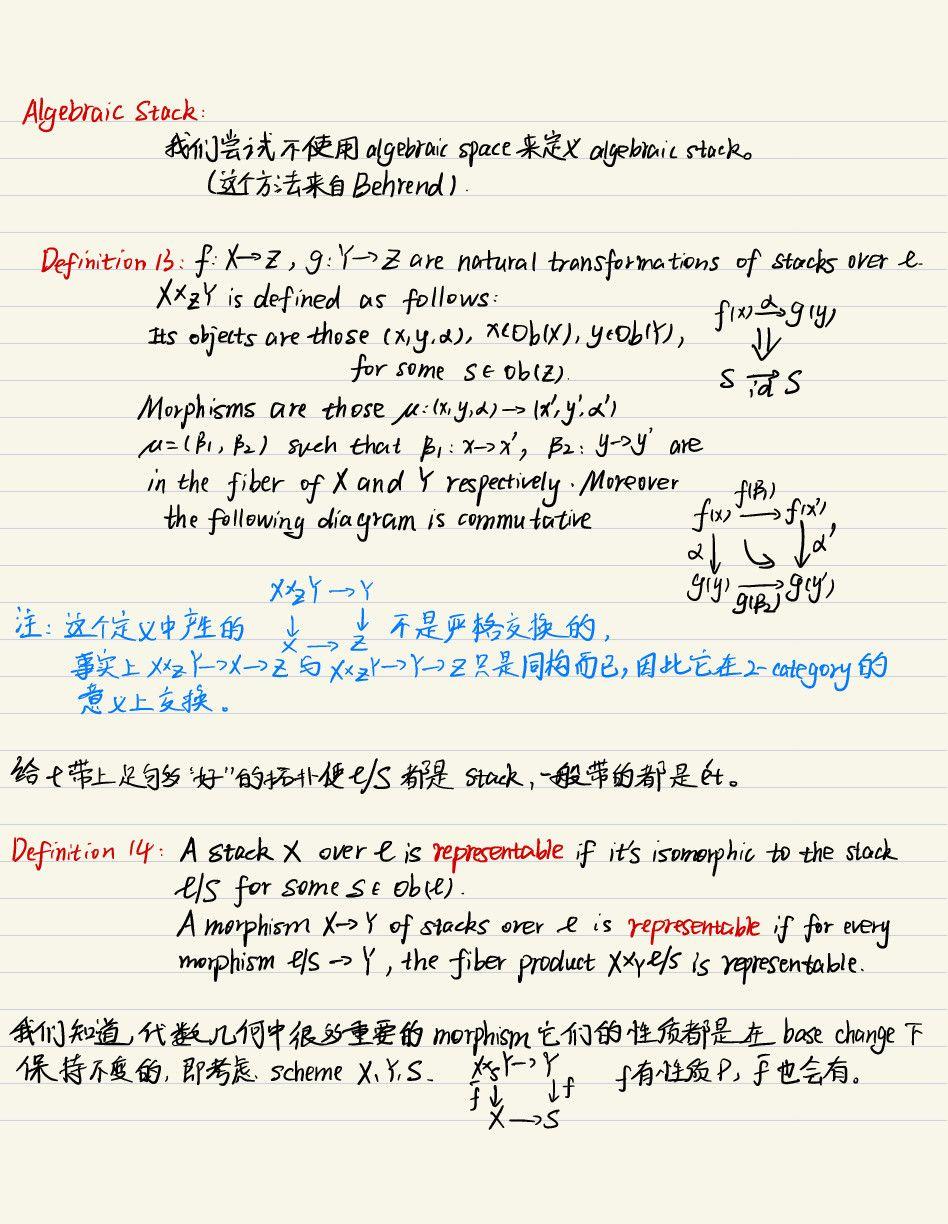 Algebraic Stack:
我们尝试不使用 algebraic space 来定义 algebraic stack。
(这个方法来自 Behrend).
Definition 13: f: X→Z, g: Y→Z are natural transformations of stacks over ℓ.
X×_Z Y is defined as follows:
Its objects are those (x,y,α), x∈Ob(X), y∈Ob(Y),
f(x) →^α g(y)
⇓
for some s∈Ob(Z).
S →_id S
Morphisms are those μ:(x,y,α)→(x′,y′,α′)
μ=(β₁,β₂) such that β₁: x→x′, β₂: y→y′ are
in the fiber of X and Y respectively. Moreover
the following diagram is commutative
f(β₁)
f(x) → f(x′),
α↓ ↓α′
g(y) → g(y′)
g(β₂)
X×_Z Y → Y
注: 这个定义中产生的 ↓ ↓ 不是严格交换的,
X → Z
事实上 X×_Z Y→X→Z 与 X×_Z Y→Y→Z 只是同构而已, 因此它在 2-category 的
意义上交换。
给 ℓ 带上足够多“好”的拓扑使 ℓ/S 都是 stack, 一般带的都是 ét。
Definition 14: A stack X over ℓ is representable if it's isomorphic to the stack
ℓ/S for some S∈Ob(ℓ).
A morphism X→Y of stacks over ℓ is representable if for every
morphism ℓ/S → Y, the fiber product X×_Y ℓ/S is representable.
我们知道, 代数几何中很多重要的 morphism 它们的性质都是在 base change 下
保持不变的, 即考虑 scheme X, Y, S. X×_S Y→Y f 有性质 P, f̄ 也会有。
f̄↓ ↓f
X→S